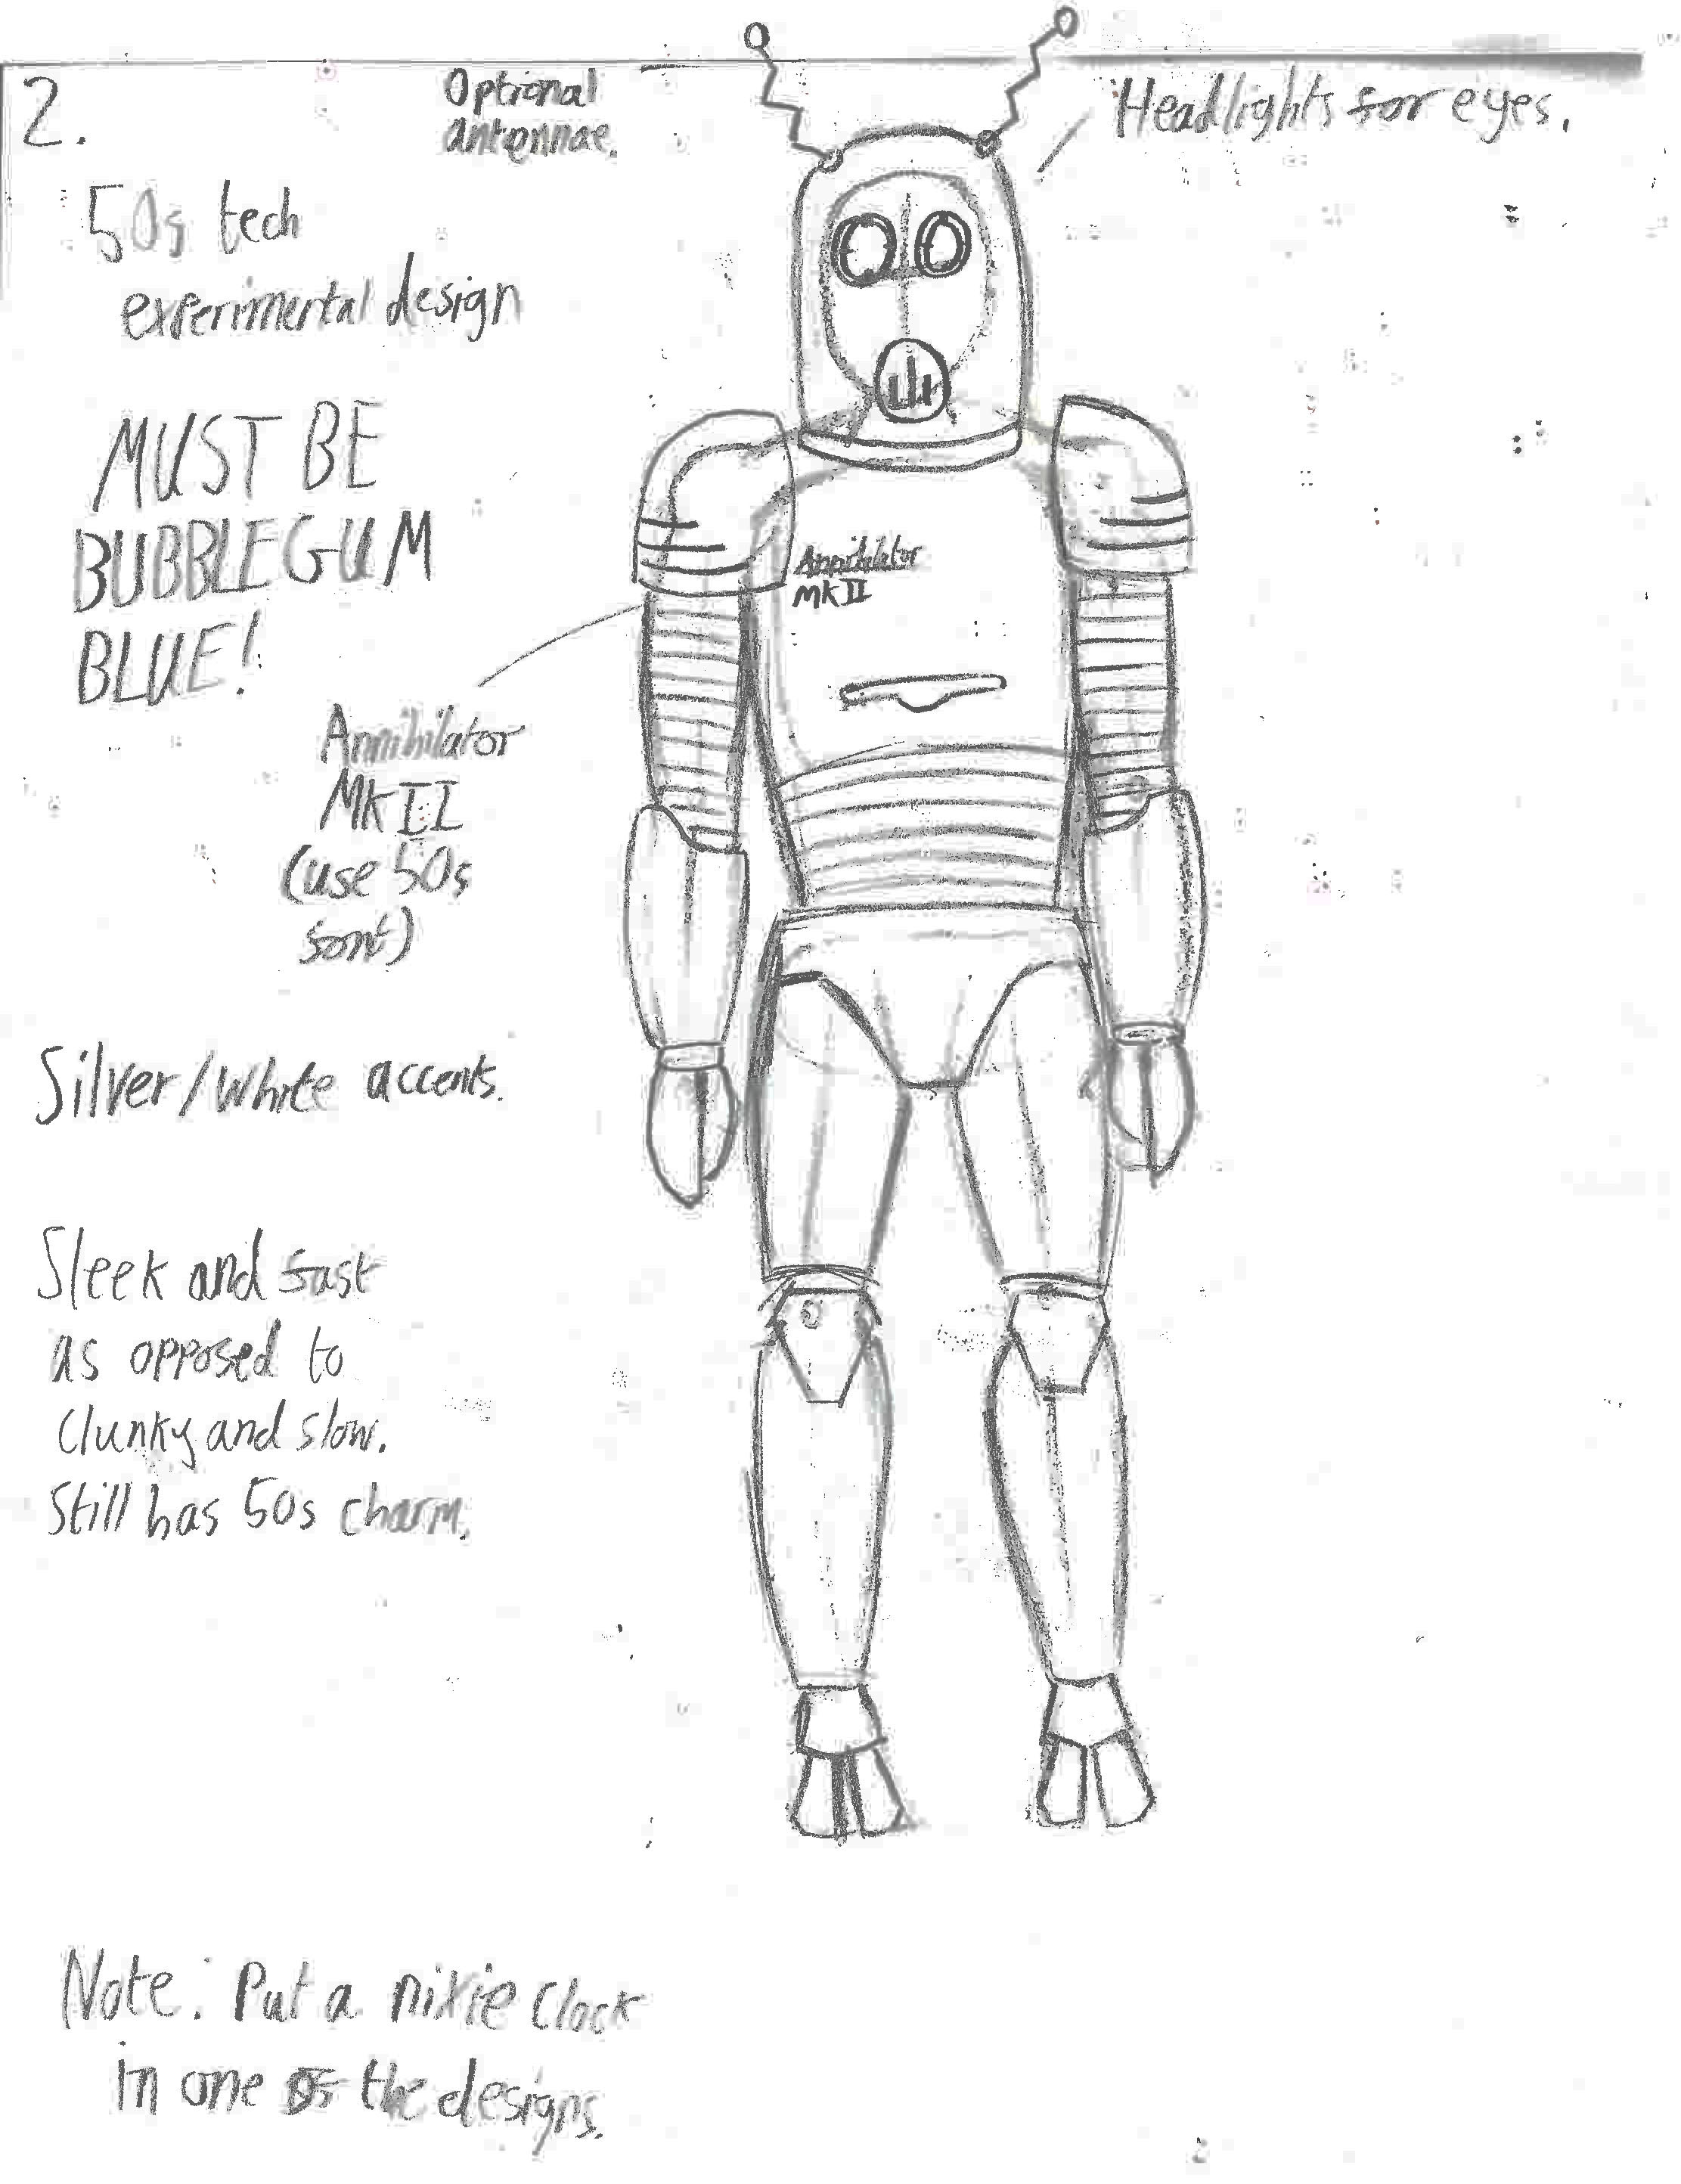 2.
Optional
antennae.
Headlights for eyes.
50s tech
experimental design
MUST BE
BUBBLEGUM
BLUE!
Annihilator
MK II
Annihilator
MK II
(use 50s
font)
Silver/White accents.
Sleek and fast
as opposed to
clunky and slow.
Still has 50s charm.
Note: Put a nixie clock
in one of the designs.